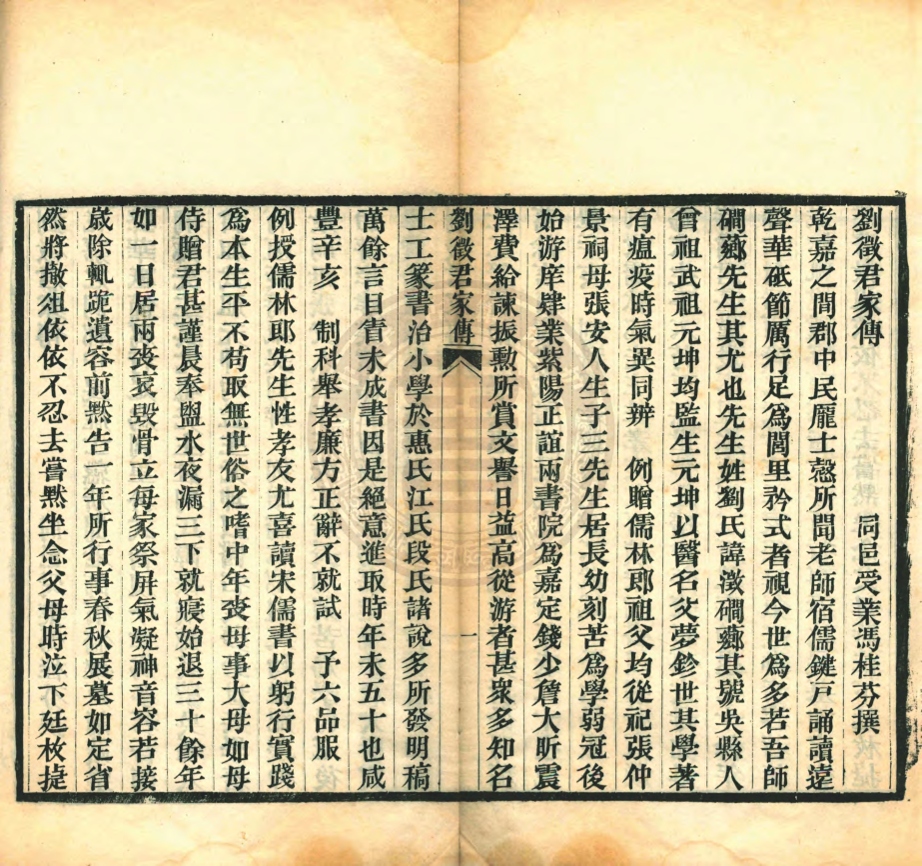 劉徵君家傳 同邑受業馮桂芬撰
乾嘉之間郡中民龐士慤所聞老師宿儒鍵戸誦讀遠
聲華砥節厲行足爲閭里矜式者視今世爲多若吾師
磵薌先生其尤也先生姓劉氏諱澂磵薌其號吳縣人
曾祖武祖元坤均監生元坤以醫名父夢鈐世其學著
有瘟疫時氣異同辨 例贈儒林郎祖父均從祀張仲
景祠母張安人生子三先生居長幼刻苦爲學弱冠後
始游庠肄業紫陽正誼兩書院爲嘉定錢少詹大昕震
澤費給諫振勳所賞文譽日益高從游者甚衆多知名
劉徵君家傳 一
士工篆書治小學於惠氏江氏段氏諸說多所發明稿
萬餘言目眚未成書因是絕意進取時年未五十也咸
豐辛亥 制科舉孝廉方正辭不就試 予六品服
例授儒林郎先生性孝友尤喜讀宋儒書以躬行實踐
爲本生平不苟取無世俗之嗜中年喪母事大母如母
侍贈君甚謹晨奉盥水夜漏三下就寢始退三十餘年
如一日居兩喪哀毀骨立每家祭屏氣凝神音容若接
歲除輒跪遺容前默告一年所行事春秋展墓如定省
然將撤俎依依不忍去嘗默坐念父母時泣下廷枚㨗